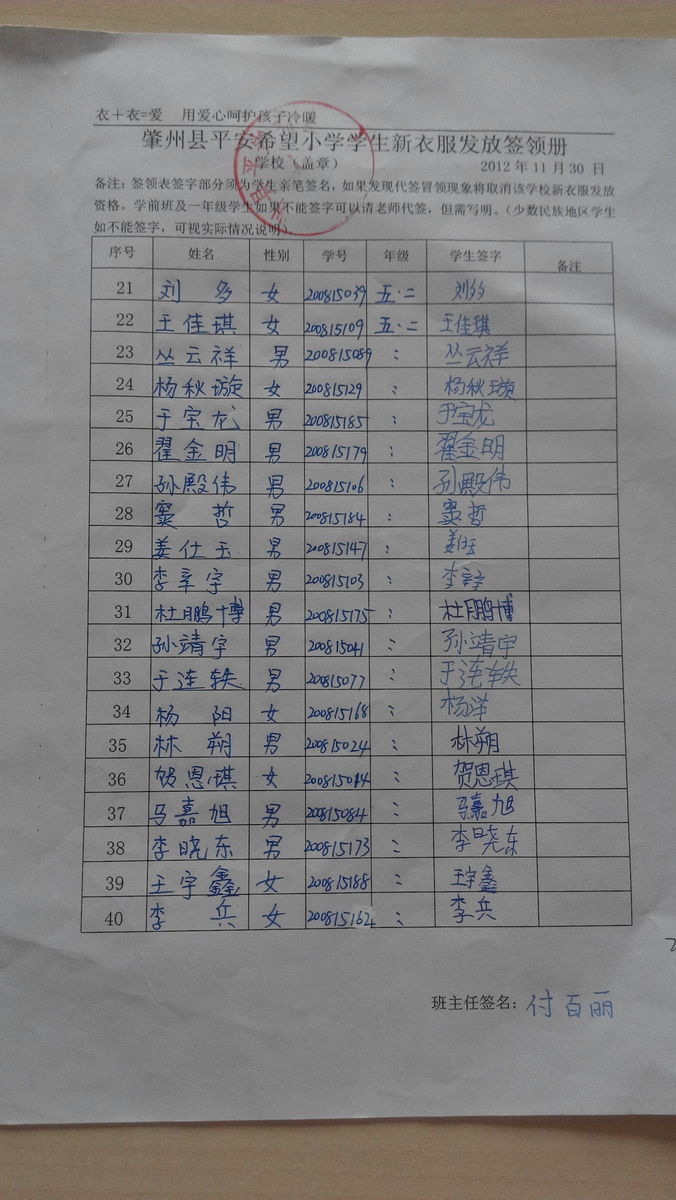 衣+衣=爱 用爱心呵护孩子冷暖
肇州县平安希望小学学生新衣服发放签领册
学校（盖章） 2012 年 11 月 30 日
备注：签领表签字部分须为学生亲笔签名，如果发现代签冒领现象将取消该学校新衣服发放
资格。学前班及一年级学生如果不能签字可以请老师代签，但需写明。（少数民族地区学生
如不能签字，可视实际情况说明）
序号 姓名 性别 学号 年级 学生签字 备注
21 刘多 女 200815039 五·二 刘多
22 王佳琪 女 200815109 五·二 王佳琪
23 丛云祥 男 200815089 : 丛云祥
24 杨秋璇 女 200815129 : 杨秋璇
25 于宝龙 男 200815185 : 于宝龙
26 翟金明 男 200815179 : 翟金明
27 孙殿伟 男 200815106 : 孙殿伟
28 窦哲 男 200815184 : 窦哲
29 姜仕玉 男 200815147 : 姜仕玉
30 李宇 男 200815103 : 李宇
31 杜鹏博 男 200815175 : 杜鹏博
32 孙靖宇 男 200815041 : 孙靖宇
33 于连轶 男 200815077 : 于连轶
34 杨阳 女 200815168 : 杨洋
35 林朔 男 200815024 : 林朔
36 贺恩琪 女 200815014 : 贺恩琪
37 马嘉旭 男 200815084 : 马嘉旭
38 李晓东 男 200815173 : 李晓东
39 王宇鑫 女 200815188 : 王宇鑫
40 李兵 女 200815162 : 李兵
班主任签名：付百丽